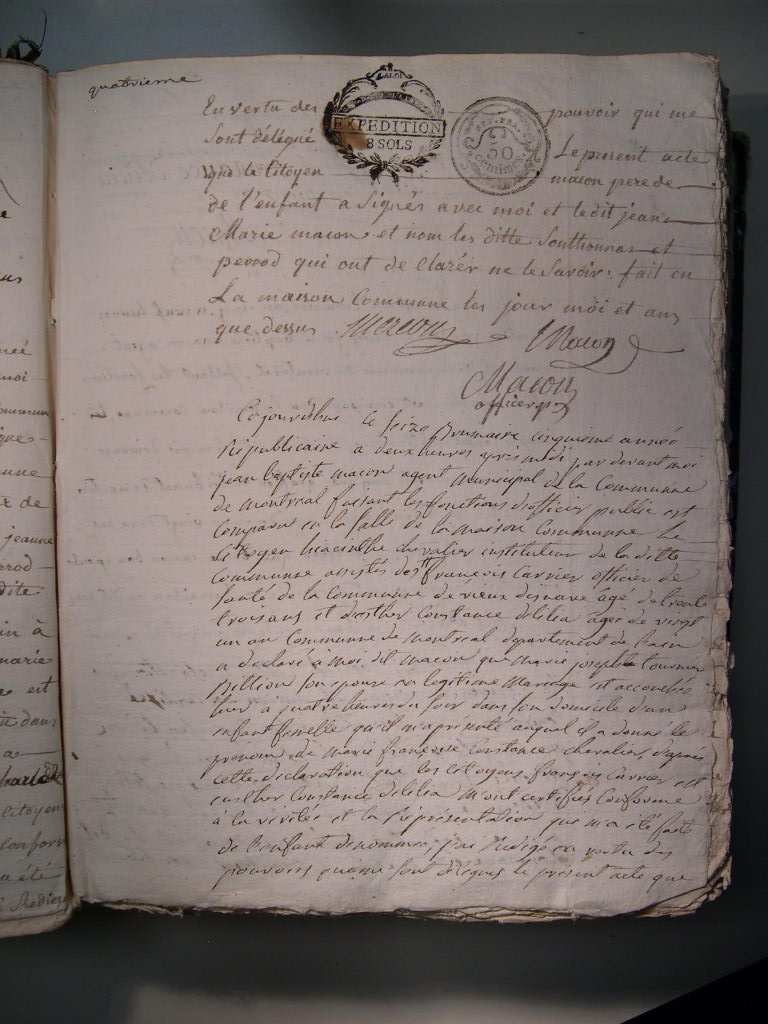 quatrieme
En vertu des pouvoir qui me
sont délégué Le present acte
que le Citoyen macon pere de
de l'enfant a signés avec moi et ledit jean
Marie macon et nom les ditte Southonnas et
perrod qui ont de Clarér ne le savoir : fait en
La maison Commune les jour moi et ans
que dessus
EXPEDITION
8 SOLS
50
Centimes
Macon
Macon
officier p.
Cejourdhui le seize Brumaire cinquieme année
Republicaine a deux heures apres midi par devant moi
jean baptiste macon agent municipal de la Communne
de montreal faisant les fonctions d'officier public est
comparu en la salle de la maison Communne Le
Citoyen hiacinthe chevalier instituteur de la ditte
Communne assistés des francois Carrier officier de
santé de la Communne de vieux agé de trente
trois ans et d'esther Constance delilia agée de vingt
un an Communne de montreal departement de l'ain
a declaré à moi dit macon que marie josephte
Billion son epouse en legitime Mariage est accouchée
hier a quatre heures du soir dans son domicile d'un
enfant femelle qu'il m'a presenté auquel il a donné le
prenom de marie francoise Constance chevalier, d'apres
cette declaration que les citoyens francois Carrier et
esther Constance delilia m'ont certifiés Conforme
à la veritée et la representation que m'a été faite
de l'enfant denommé, j'ai redigé en vertu des
pouvoirs qui me sont delegués le present acte que
née
moi
commun
ne
x de
jeanne
rod
dite
in à
marie
est
dans
a
citoyen
conform
a été
Redige